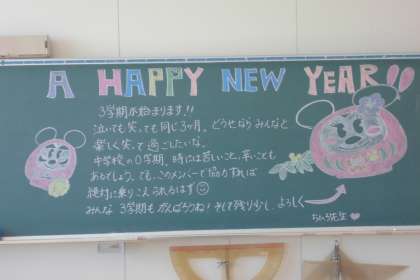 A HAPPY NEW YEAR!!
3学期が始まります!!
泣いても笑っても同じ3ヶ月。どうせならみんなと
楽しく笑って過ごしたいな。
中学校の0学期、時には苦しいこと、辛いことも
あるでしょう。でも、このメンバーで協力すれば
絶対に乗りこえられるはず
みんな 3学期もがんばろうね! そして残り少し、よろしく